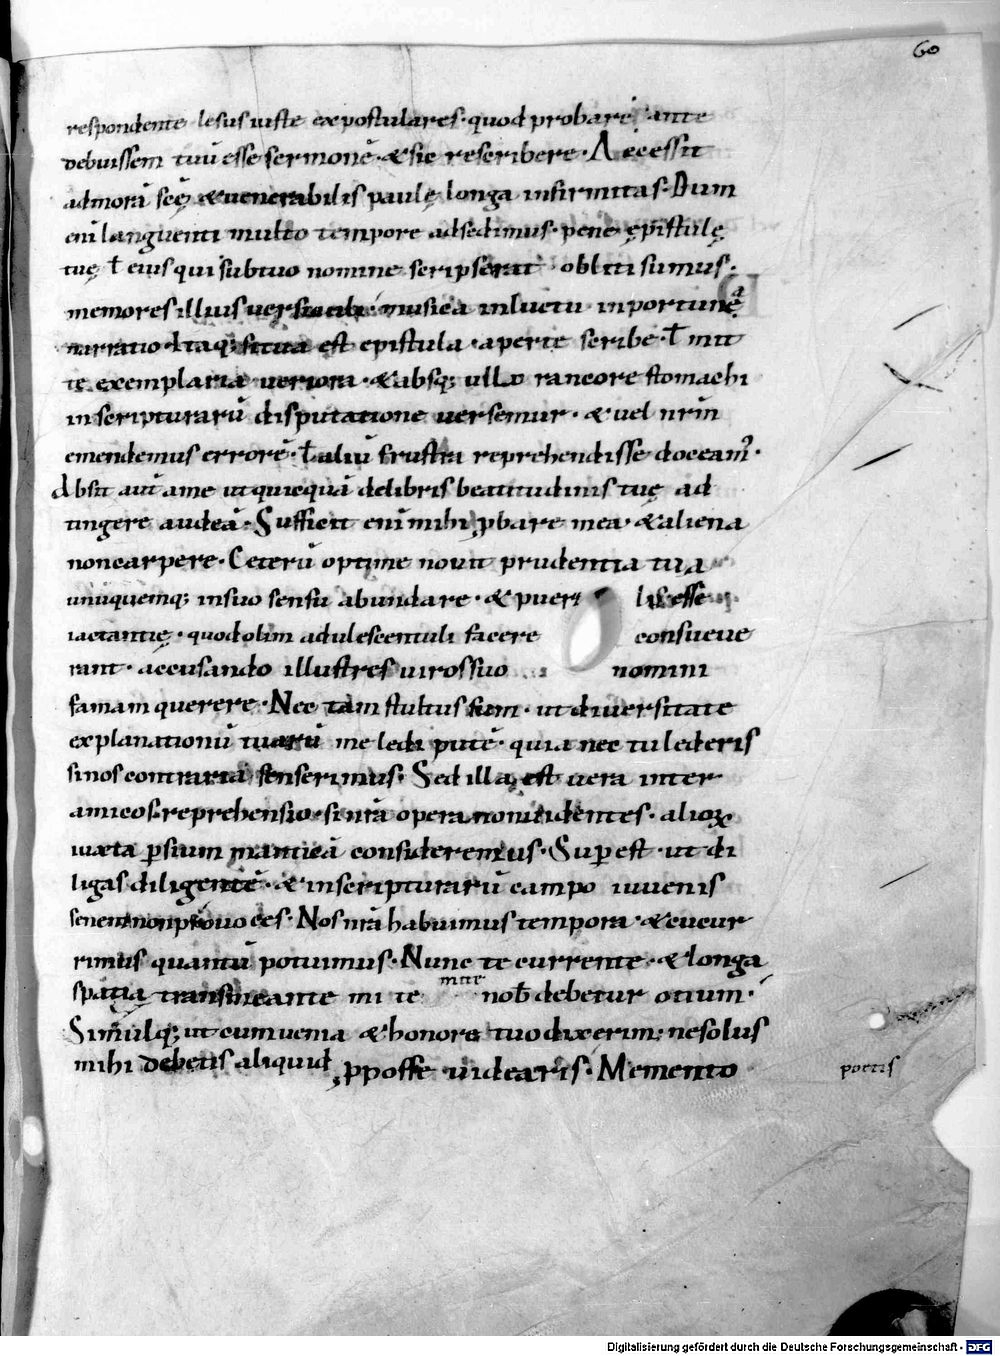 60
respondente lesus iuste expostulares · quod probare ante
debuissem tuū esse sermonē · & sic rescribere · Accessit
ad morā scę & uenerabilis paulę longa infirmitas · Dum
enī languenti multo tempore adsedimus · pene epistulę
tuę ł eius qui sub tuo nomine scripserat obliti sumus ·
memores illius uersiculi · musica in luctu inportuna
narratio · Itaq; si tua est epistula · aperte scribe · ł mit
te exemplaria ueriora · & absq; ullo rancore stomachi
in scripturarū disputatione uersemur · & uel nr̄m
emendemus errorē · ł aliū frustra reprehendisse doceam̄ ·
Absit aut̄ a me ut quicquā de libris beatitudinis tuę ad
tingere audeā · Sufficit enī mihi ꝓbare mea · & aliena
non carpere · Ceterū optime nouit prudentia tua
unūquemq; in suo sensu abundare · & pueri lis esse
iactantię · quod olim adulescentuli facere consueue
rant · accusando illustres uiros suo nomini
famam querere · Nec tam stultus sum · ut diuersitate
explanationū tuarū me ledi putē · quia nec tu lederis
si nos contraria senserimus · Sed illa est uera inter
amicos reprehensio · si nr̄a opera non uidentes · alioꝝ
iuxta ꝑsium manticā consideremus · Suꝑ est · ut di
ligas diligentē · & in scripturarū campo iuuenis
senem non prouoces · Nos nr̄a habuimus tempora · & cucur
rimus quantū potuimus · Nunc te currente · & longa
mitte
spatia transmeante mi te nob̄ debetur otium ·
Simulq; ut cum uenia & honore tuo dixerim; ne solus
mihi de poetis aliquid ꝓposse uidearis · Memento
poetis
Digitalisierung gefördert durch die Deutsche Forschungsgemeinschaft - DFG